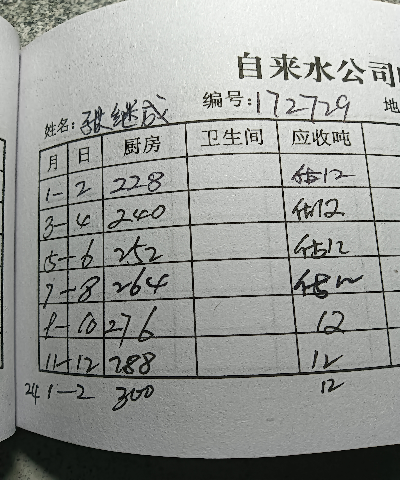 自来水公司
姓名: 张继成 编号: 172729 地
月 日 厨房 卫生间 应收吨
1-2 228 估12
3-4 240 估12
5-6 252 估12
7-8 264 估12
9-10 276 12
11-12 288 12
24 1-2 300 12